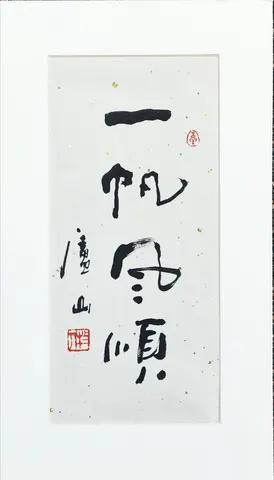 一帆風順
山